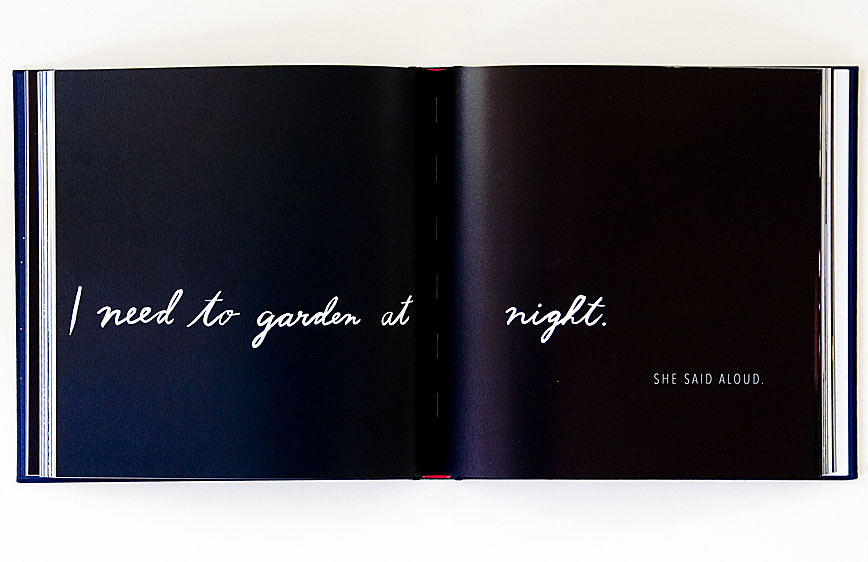 I need to garden at night.
SHE SAID ALOUD.